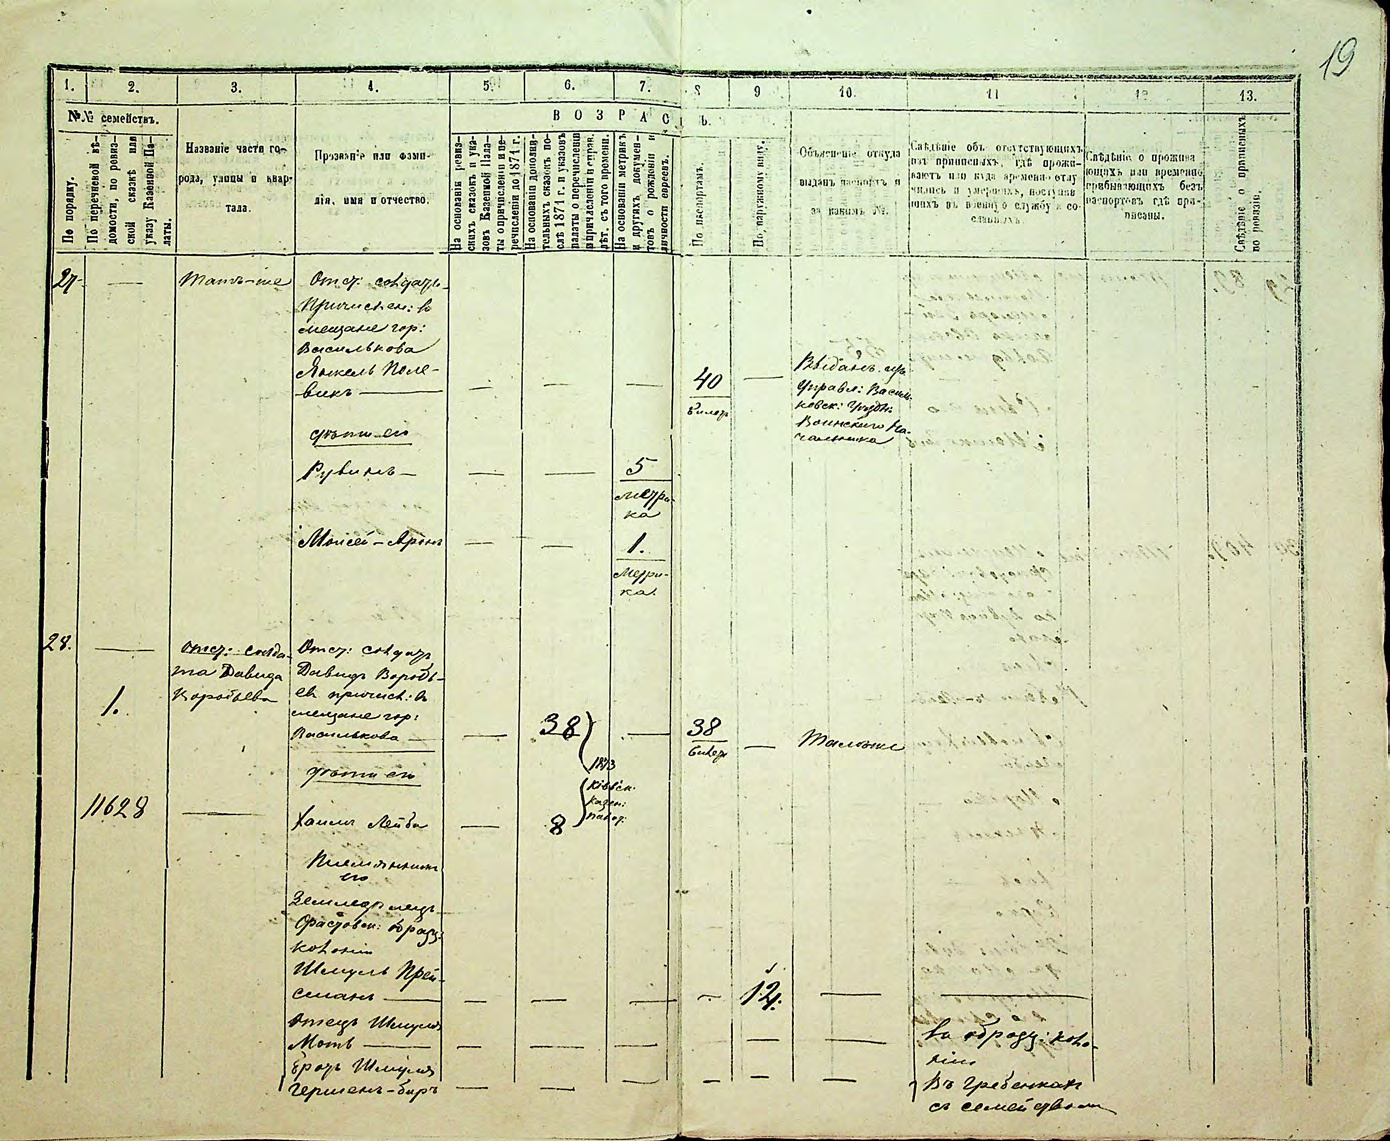 19
1. 2. 3. 4. 5. 6. 7. 8 9 10. 11 12 13.
№№ семействъ.
В О З Р А С Т Ъ.
По порядку.
По перечневой вѣ-
домости, по ревиз-
ской сказкѣ или
указу Казенной Па-
латы.
Названіе части го-
рода, улицы и квар-
тала.
Прозваніе или фами-
лія, имя и отчество.
На основаніи ревиз-
скихъ сказокъ и ука-
зовъ Казенной Пала-
ты о причисленіи и пе-
речисленіи до 1874 г.
На основаніи дополни-
тельныхъ сказокъ по-
слѣ 1874 г. и указовъ
палаты о перечисленіи
и причисленіи и справ.
лѣт. съ того времени.
На основаніи метрикъ
и другихъ докумен-
товъ о рожденіи и
личности евреевъ.
По паспортамъ.
По наружному виду.
Объясненіе откуда
выданъ паспортъ и
за какимъ №.
Свѣдѣніе объ отсутствующихъ
изъ приписныхъ, гдѣ прожи-
ваютъ или куда временно отлу
чились и умершихъ, поступив
шихъ въ военную службу и со-
сланныхъ.
Свѣдѣніе о прожива
ющихъ или временно
прибывающихъ безъ
паспортовъ гдѣ при-
писаны.
Свѣдѣніе о приписныхъ
по ревизіи.
27. — Тамъ-же Отст: солдатъ
Причислен: въ
мещане гор:
Василькова
Янкель Поле-
викъ — — — — 40 —
билетъ
Выданъ изъ
Управл: Василь-
ковск: Уѣздн:
Воинскаго На-
чальника
дѣти его
Рувинъ — — — 5
метри-
ка
Моисей-Аронъ — — 1.
Метри-
ка.
28. — Отст: солда-
та Давида
Воробьева
Отст: солдатъ
Давидъ Воробь-
евъ причисл: въ
мещане гор:
Василькова — — 38 — 38 — Таможе
билетъ
1.
дѣти его
1873
Кіевск.
казен:
палат:
11628 — Хаимъ Лейба — 8
Племянникъ
его
Земледѣлецъ
Фастовск: Образц:
колоніи
Шмуль Прей-
сманъ — — — — — 12. — —
Отецъ Шмуля
Мотъ — — — — — — —
въ образц: коло-
ніи
братъ Шмуля
Гершенъ-беръ — — — — —
Въ Гребенкахъ
съ семействомъ